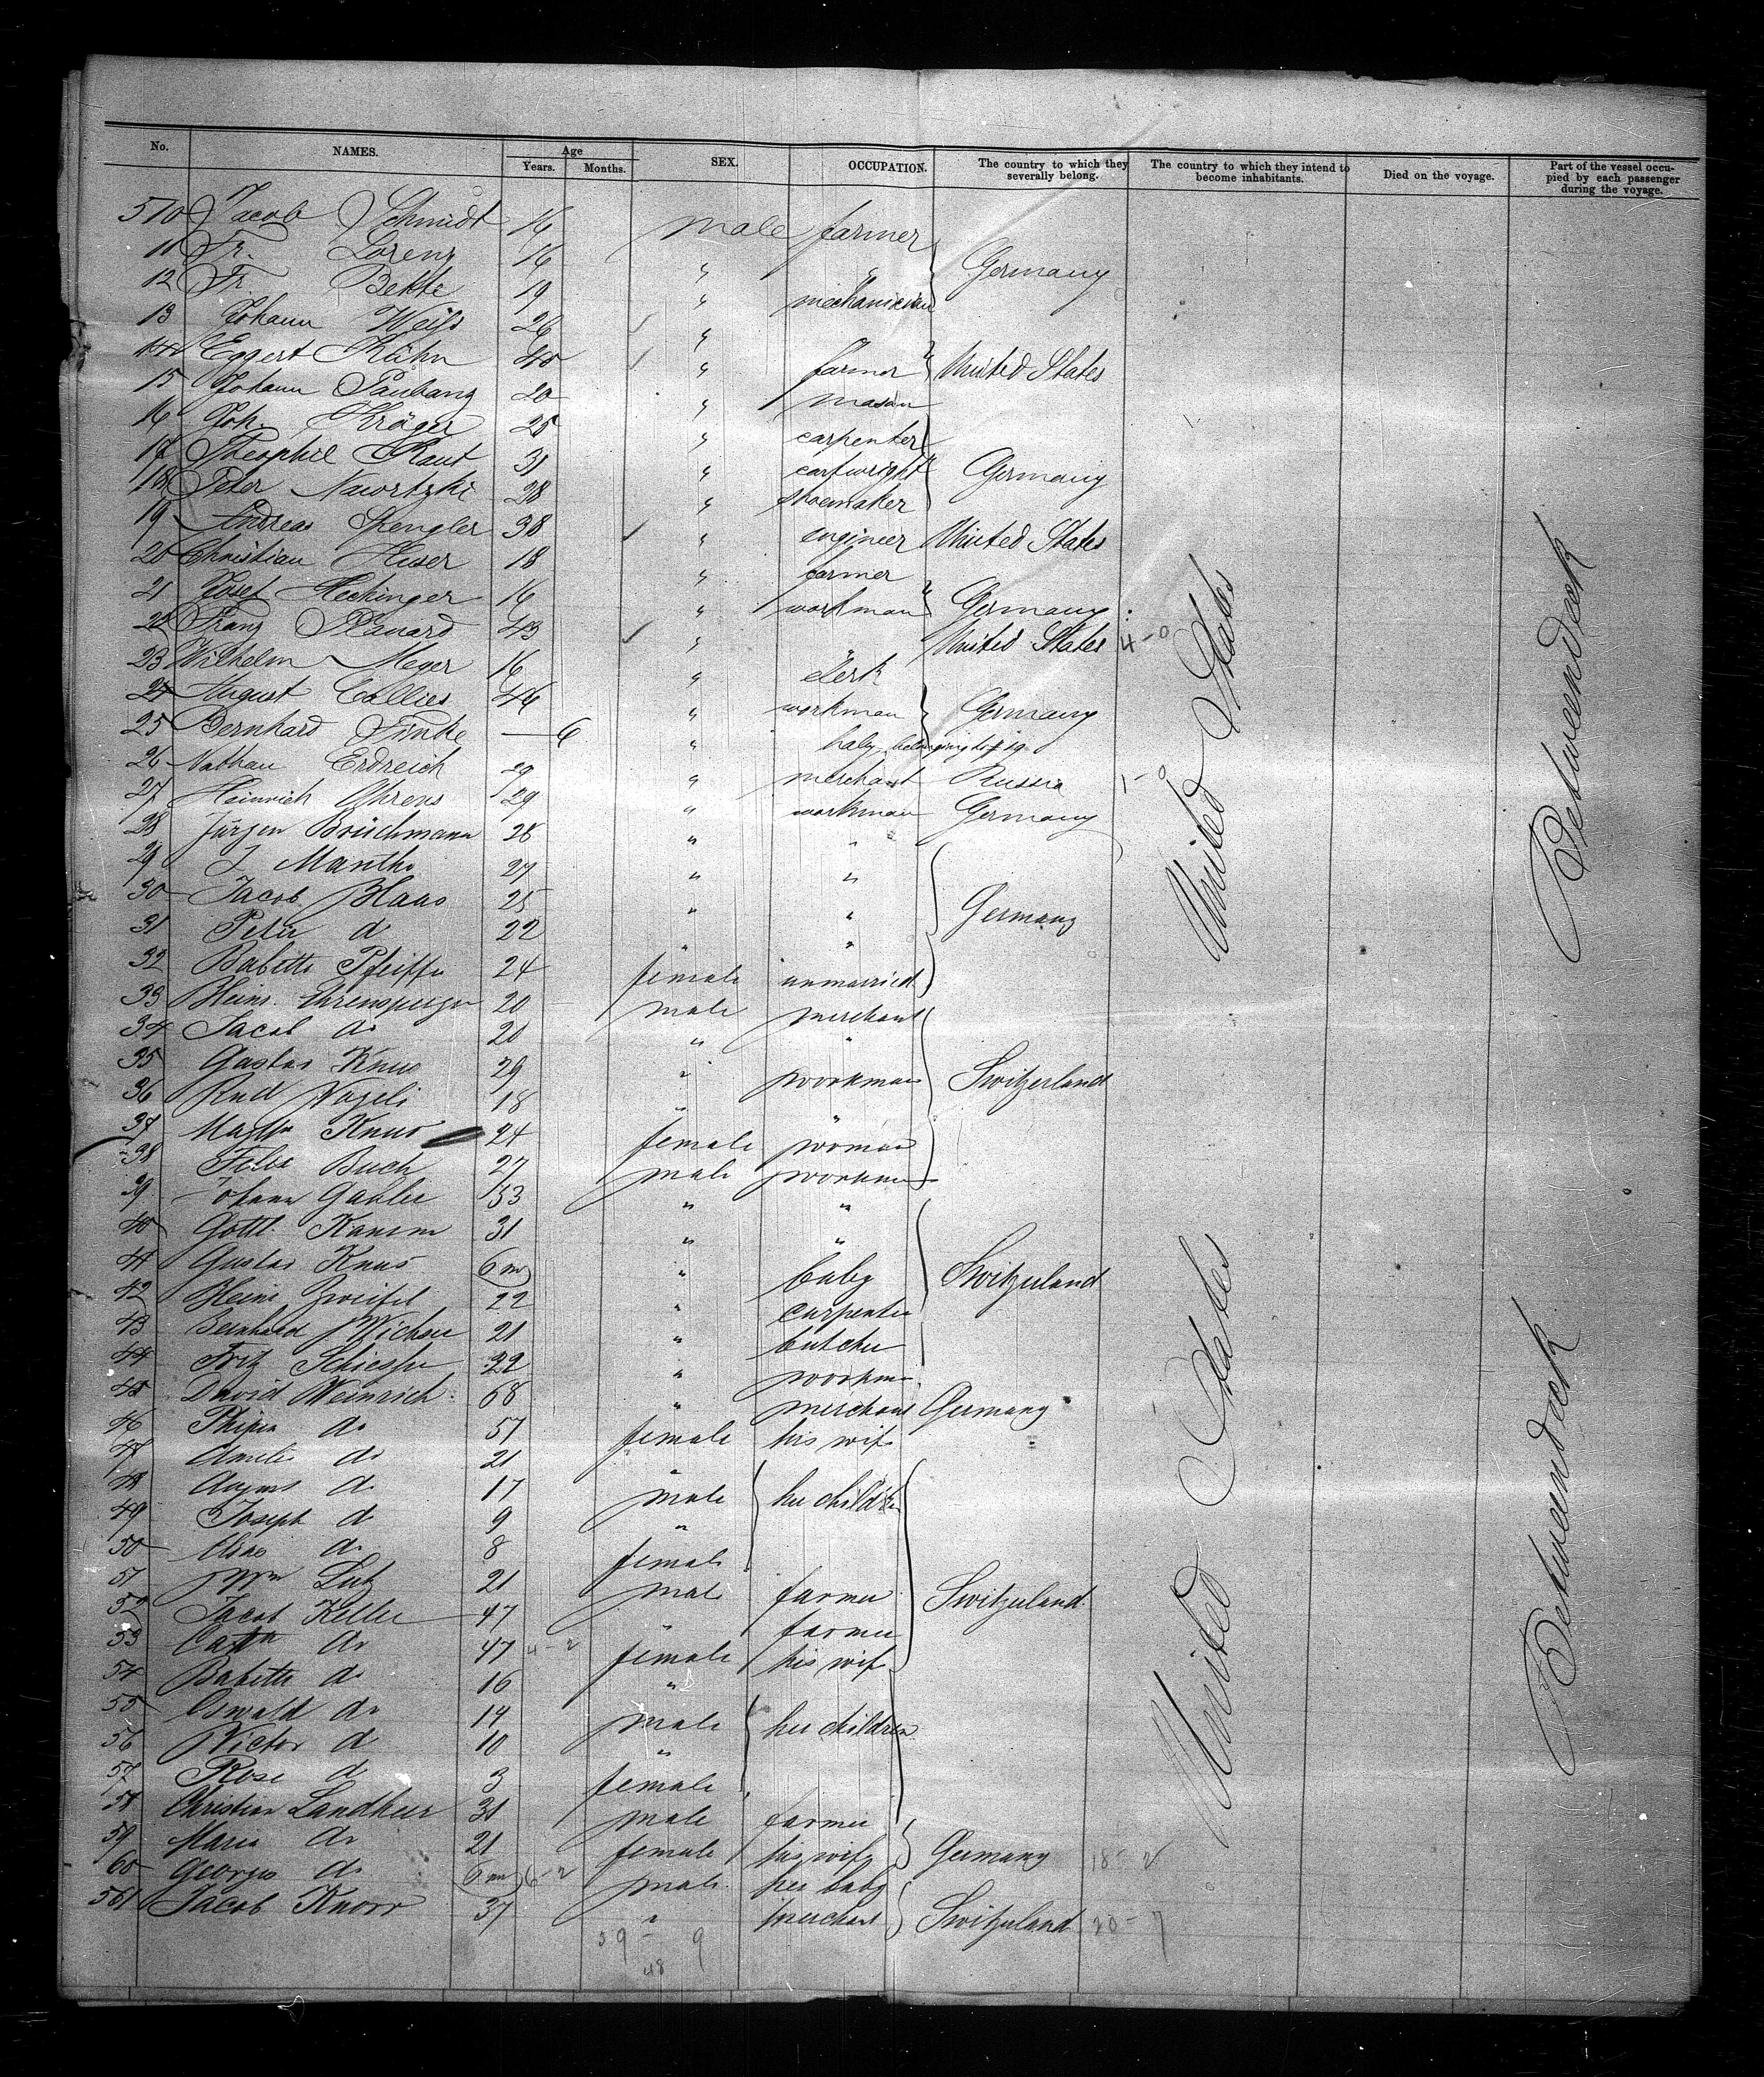 No. NAMES. Age Years. Months. SEX. OCCUPATION. The country to which they severally belong. The country to which they intend to become inhabitants. Died on the voyage. Part of the vessel occupied by each passenger during the voyage.
510 Jacob Schmidt 16 male farmer
11 Fr. Lorenz 16 " " Germany
12 Fr. Bethe 19 " mechanician
13 Johann Weiß 26 "
14 Eggert Kühn 40 " farmer United States
15 Johann Paubang 20 " mason
16 Joh. Kröger 25 " carpenter
17 Theophil Raut 31 " cartwright Germany
18 Peter Nawrtzki 28 " shoemaker
19 Andreas Spengler 38 " engineer United States
20 Christian Huser 18 " farmer
21 Josef Hechinger 16 " workman Germany
22 Franz 43 " " United States 4-0
23 Wilhelm Meyer 16 " clerk
24 August Collies 44 " workman Germany
25 Bernhard Finke — 6 " baby belonging to
26 Nathan Erdreich 29 " merchant Russia 1-0
27 Heinrich Ahrens 29 " workman Germany
28 Jürgen Brüchmann 28 " "
29 J. Manthe 27 " "
30 Jacob Haas 25 " " Germany
31 Peter do 22 " "
32 Babette Pfeiffer 24 female unmarried
33 Heinr. Ehrensperger 20 male merchant
34 Jacob do 20 " "
35 Gustav Knus 29 " workman Switzerland
36 Rud Nageli 18 " "
37 Knus 24 female woman
38 Felix Buch 27 male workman
39 Johann Gahler 33 " "
40 Gottl. Kamm 31 " "
41 Gustav Knus 6 m " baby Switzerland
42 Heinr Zweifel 22 " carpenter
43 Bernhard 21 " butcher
44 Fritz Schiesser 22 " workman
45 David Weinrich 68 " merchant Germany
46 do 57 female his wife
47 Amelie do 21 "
48 August do 17 male her children
49 Joseph do 9 "
50 do 8 female
51 Wm Lutz 21 male farmer Switzerland
52 Jacob Keller 47 " farmer
53 Cath do 47 4-2 female his wife
54 Babette do 16 "
55 Oswald do 14 male her children
56 Victor do 10 "
57 Rose do 3 female
58 Christian Landheer 31 male farmer
59 Maria do 21 female his wife Germany 18-2
60 Georges do 6 m 6-2 male her baby
561 Jacob Knorr 37 " merchant Switzerland 20-7
59-9
48
United States
United States
Betweendeck
Betweendeck